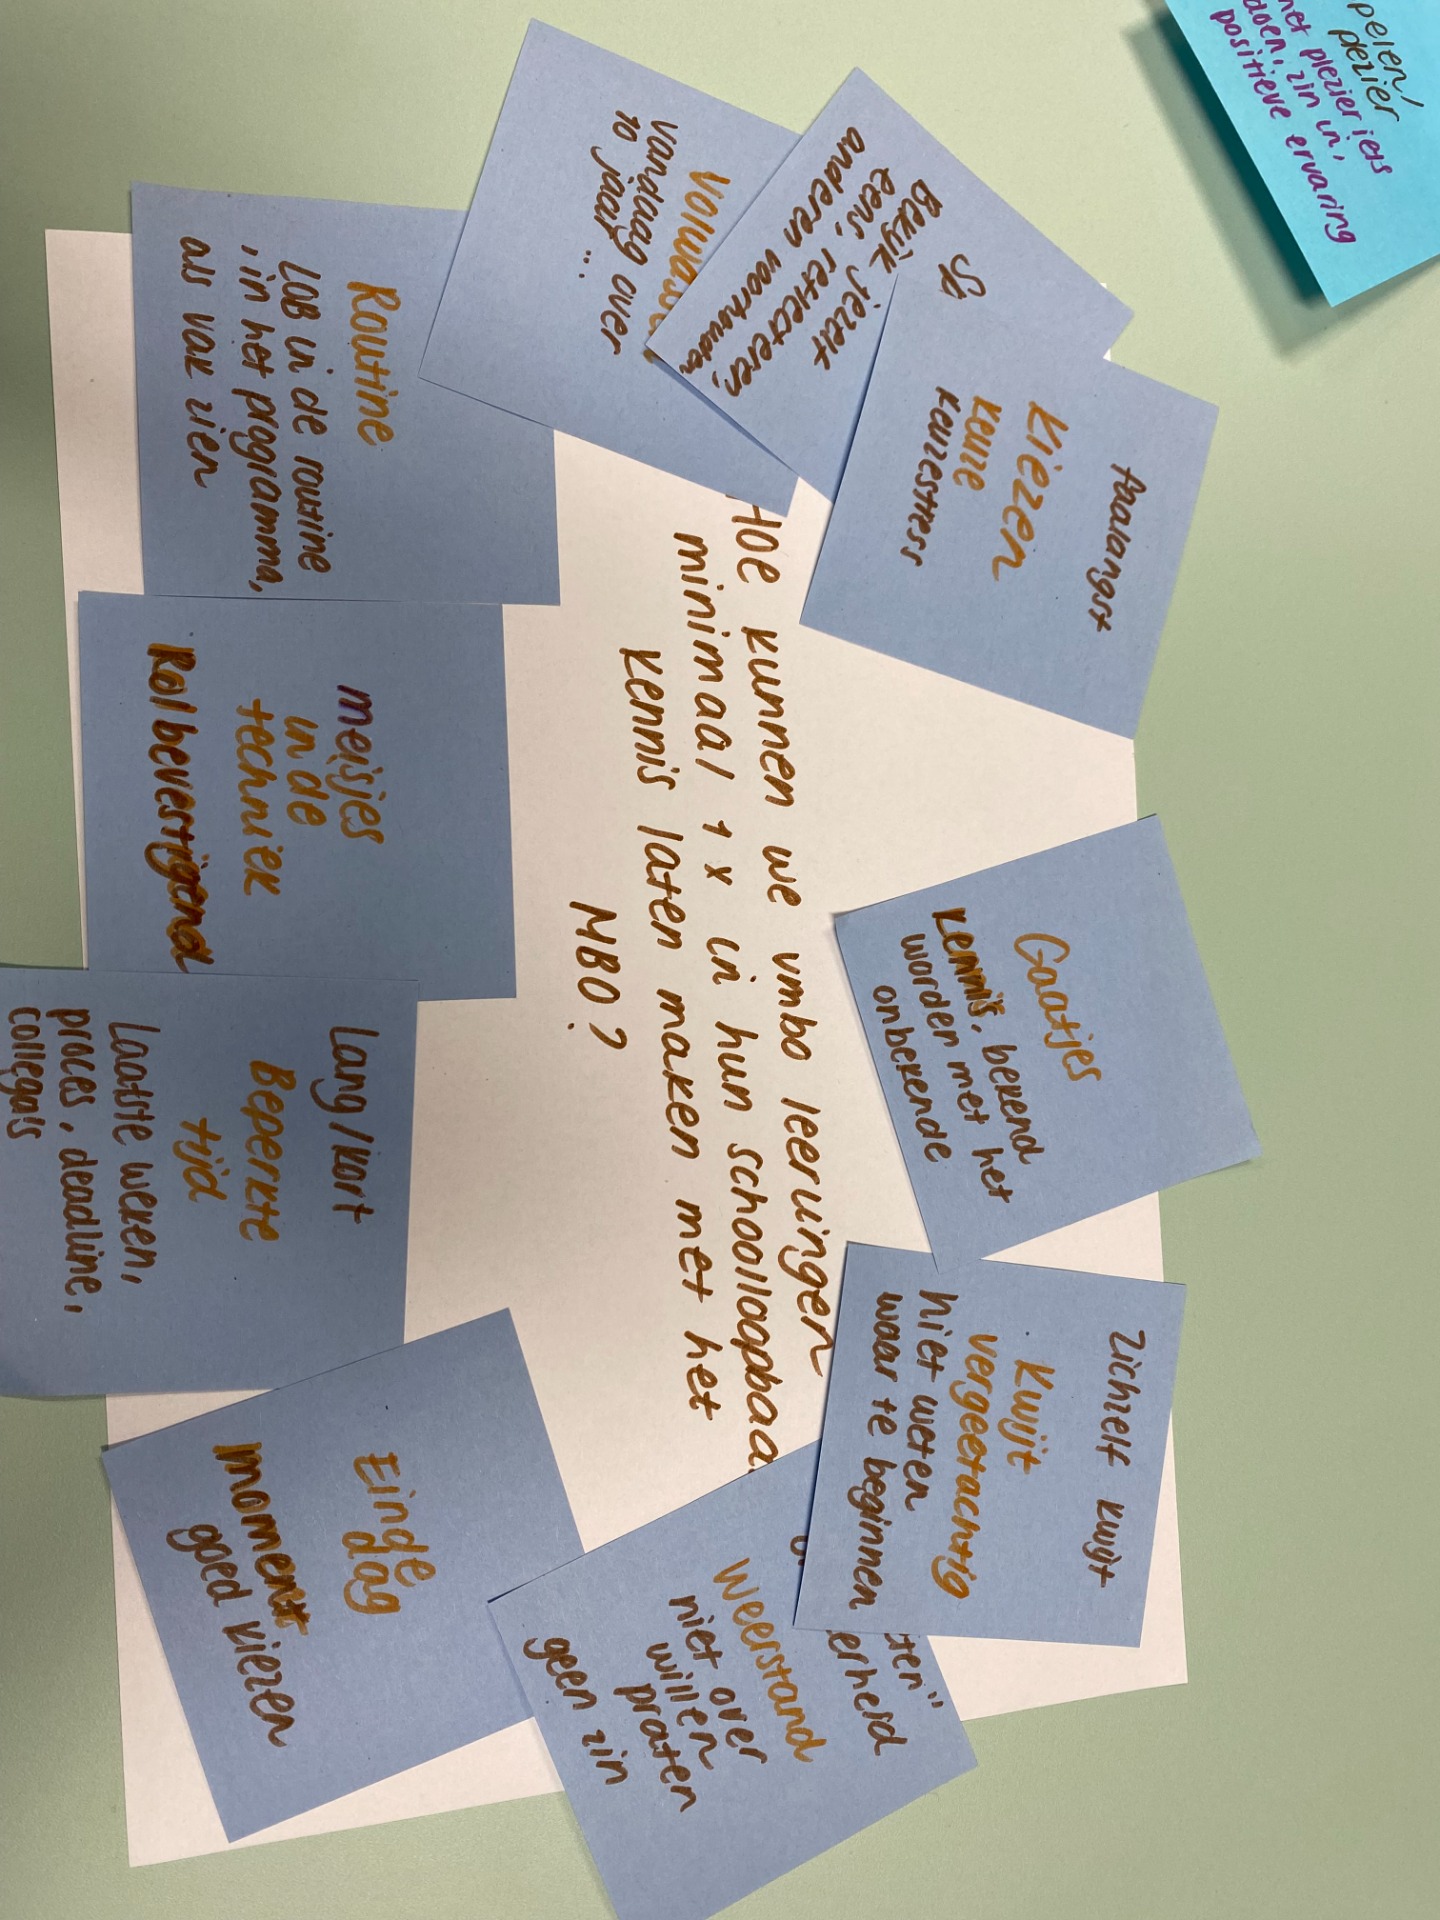 Hoe kunnen we vmbo leerlingen
minimaal 1x in hun schoolloopbaa
kennis laten maken met het
MBO?
Faalangst
Kiezen
keuze
keuzestress
Bekijk jezelf
eens, reflecteren,
anderen voorhouden
vandaag over
10 jaar...
Routine
LOB in de routine
, in het programma,
als vak zien
meisjes
in de
techniek
Rolbevestigend
Lang/kort
Beperkte
tijd
Laatste weken,
proces, deadline,
collega's
Einde
dag
moment
goed kiezen
Weerstand
niet over
willen
praten
geen zin
zichzelf kwijt
kwijt
vergeetachtig
niet weten
waar te beginnen
Gaatjes
kennis, bekend
worden met het
onbekende
plezier
met plezier iets
doen, zin in,
positieve ervaring